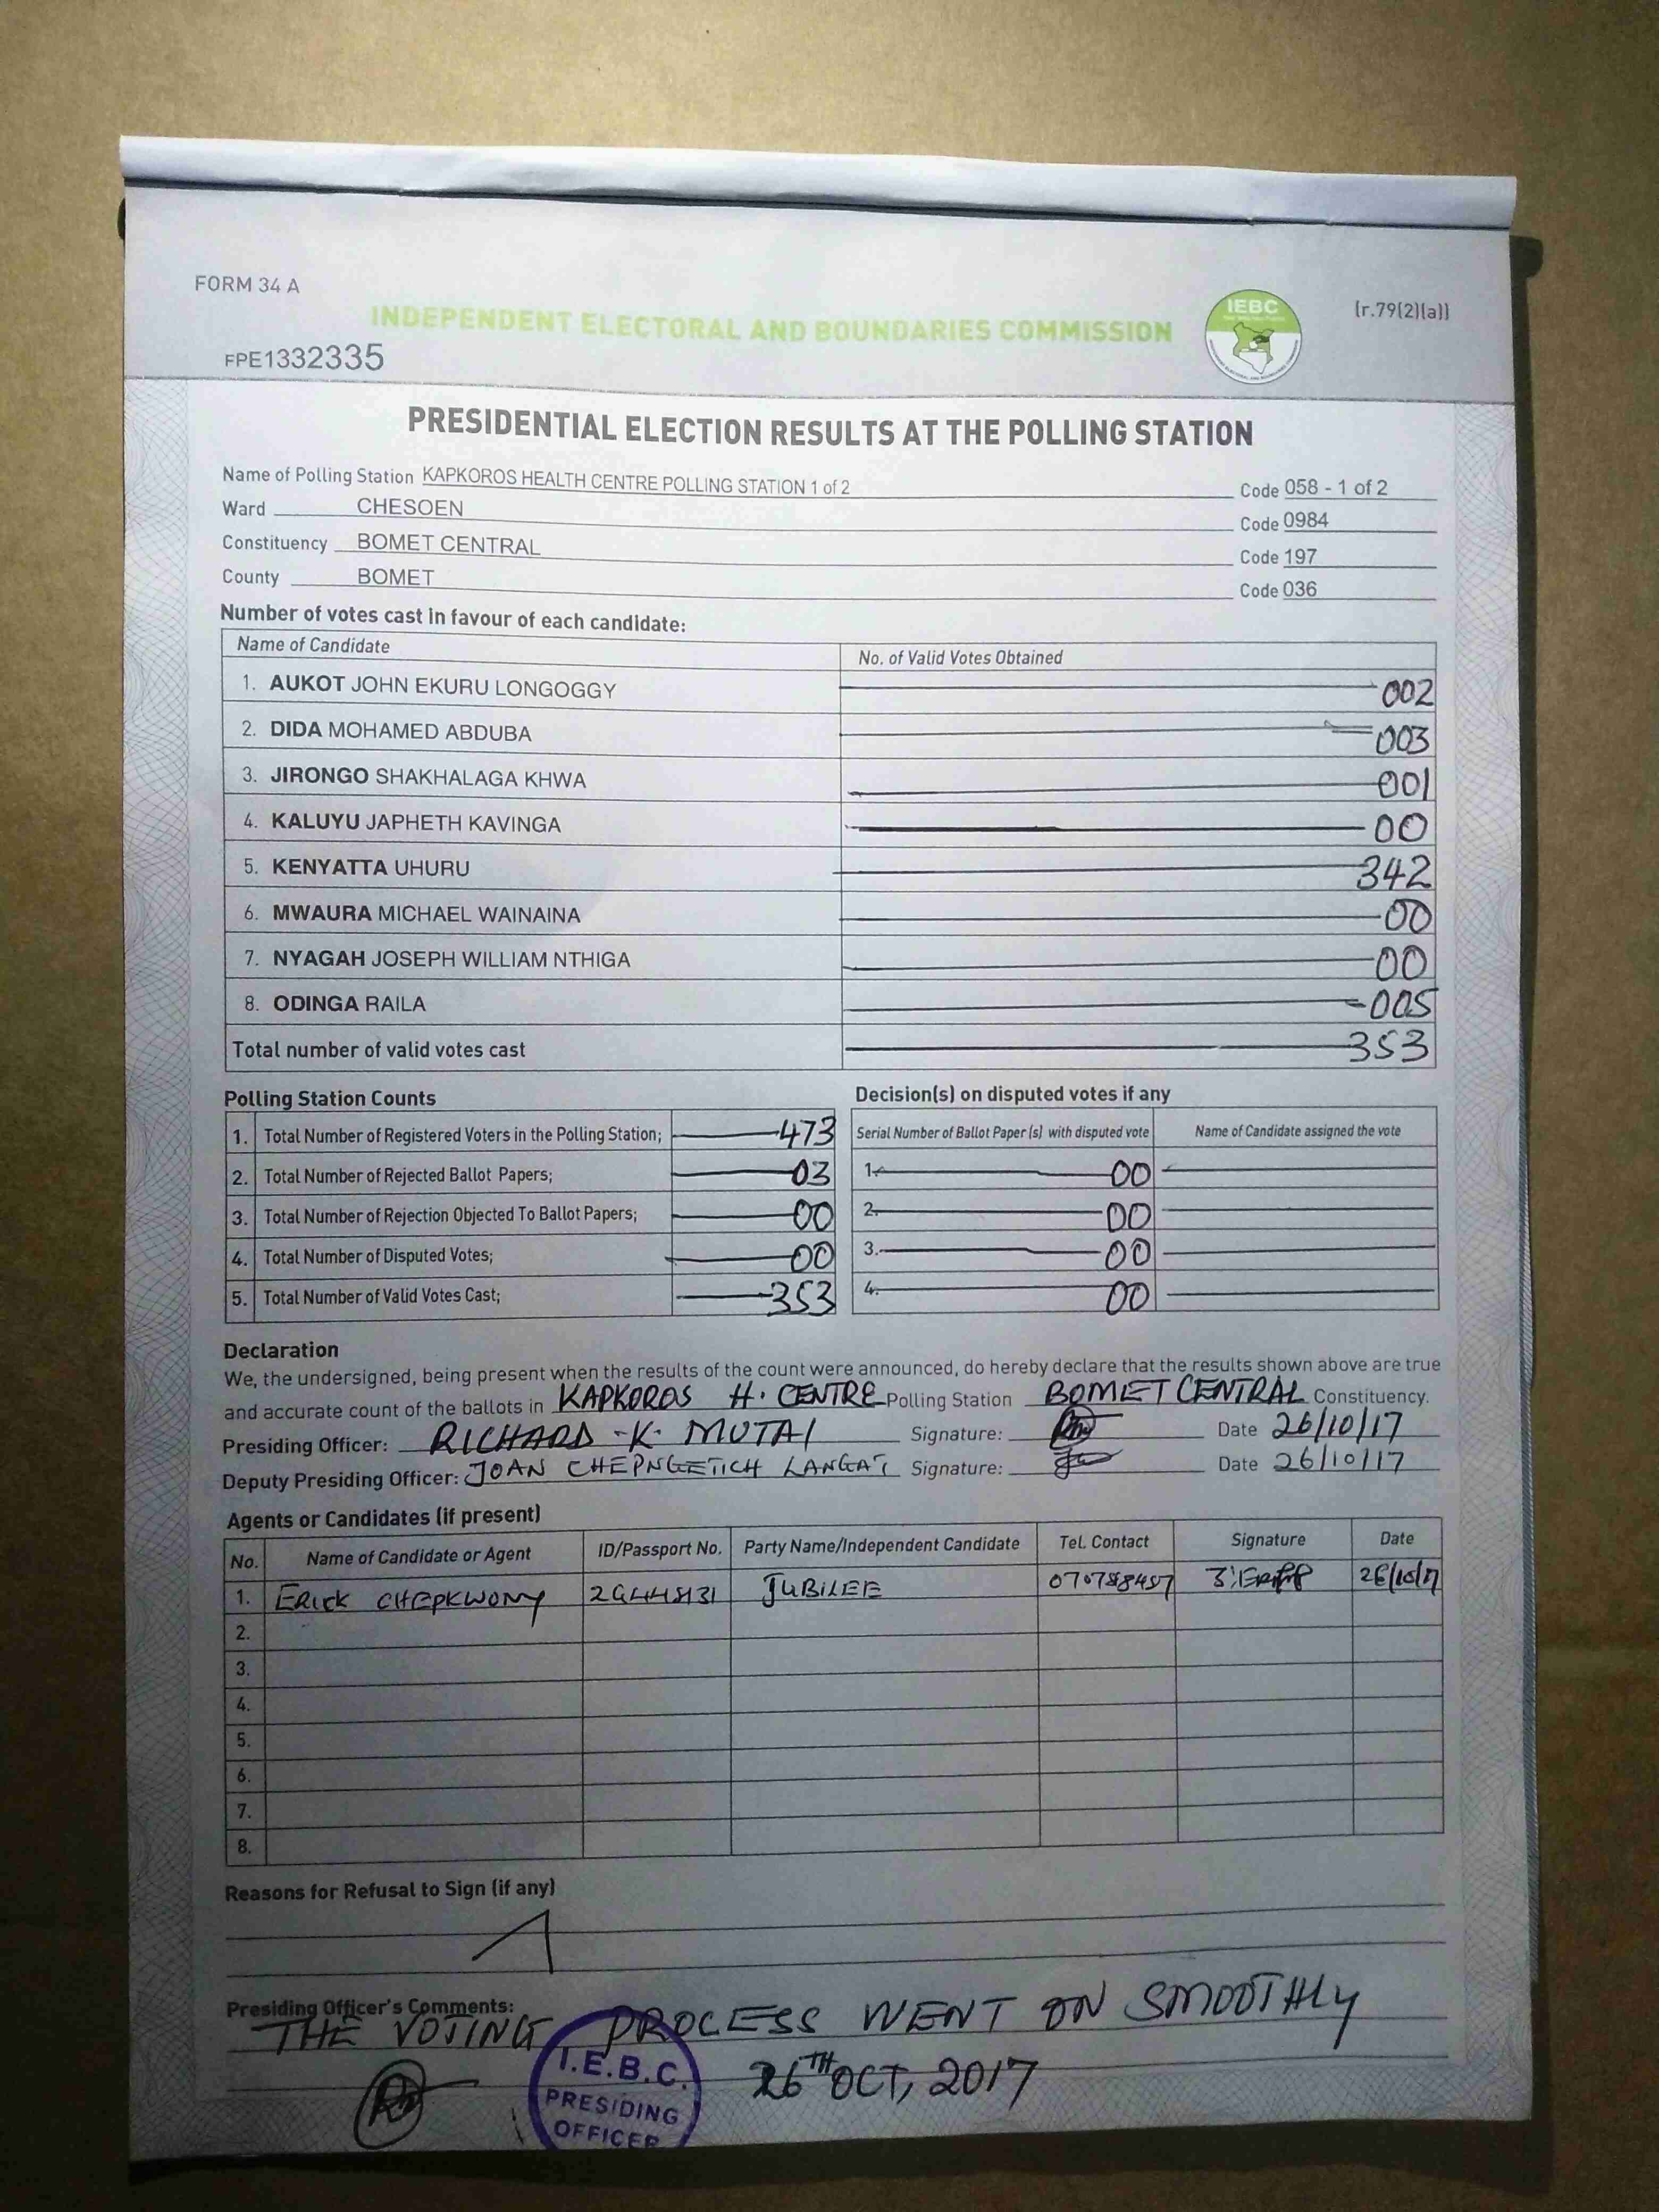 FORM 34 A
IEBC
(r.79(2)(a))
INDEPENDENT ELECTORAL AND BOUNDARIES COMMISSION
FPE1332335
PRESIDENTIAL ELECTION RESULTS AT THE POLLING STATION
Name of Polling Station KAPKOROS HEALTH CENTRE POLLING STATION 1 of 2 Code 058 - 1 of 2
Ward CHESOEN Code 0984
Constituency BOMET CENTRAL Code 197
County BOMET Code 036
Number of votes cast in favour of each candidate:
Name of Candidate No. of Valid Votes Obtained
1. AUKOT JOHN EKURU LONGOGGY 002
2. DIDA MOHAMED ABDUBA 003
3. JIRONGO SHAKHALAGA KHWA 001
4. KALUYU JAPHETH KAVINGA 00
5. KENYATTA UHURU 342
6. MWAURA MICHAEL WAINAINA 00
7. NYAGAH JOSEPH WILLIAM NTHIGA 00
8. ODINGA RAILA 005
Total number of valid votes cast 353
Polling Station Counts Decision(s) on disputed votes if any
1. Total Number of Registered Voters in the Polling Station; 473 Serial Number of Ballot Paper (s) with disputed vote Name of Candidate assigned the vote
2. Total Number of Rejected Ballot Papers; 03 1. 00
3. Total Number of Rejection Objected To Ballot Papers; 00 2. 00
4. Total Number of Disputed Votes; 00 3. 00
5. Total Number of Valid Votes Cast; 353 4. 00
Declaration
We, the undersigned, being present when the results of the count were announced, do hereby declare that the results shown above are true
and accurate count of the ballots in KAPKOROS H. CENTRE Polling Station BOMET CENTRAL Constituency.
Presiding Officer: RICHARD -K- MUTAI Signature: Date 26/10/17
Deputy Presiding Officer: JOAN CHEPNGETICH LANGAT Signature: Date 26/10/17
Agents or Candidates (if present)
No. Name of Candidate or Agent ID/Passport No. Party Name/Independent Candidate Tel. Contact Signature Date
1. ERICK CHEPKWONY JUBILEE 26/10/17
2.
3.
4.
5.
6.
7.
8.
Reasons for Refusal to Sign (if any)
Presiding Officer's Comments:
THE VOTING PROCESS WENT ON SMOOTHLY
26TH OCT, 2017
I.E.B.C.
PRESIDING
OFFICER